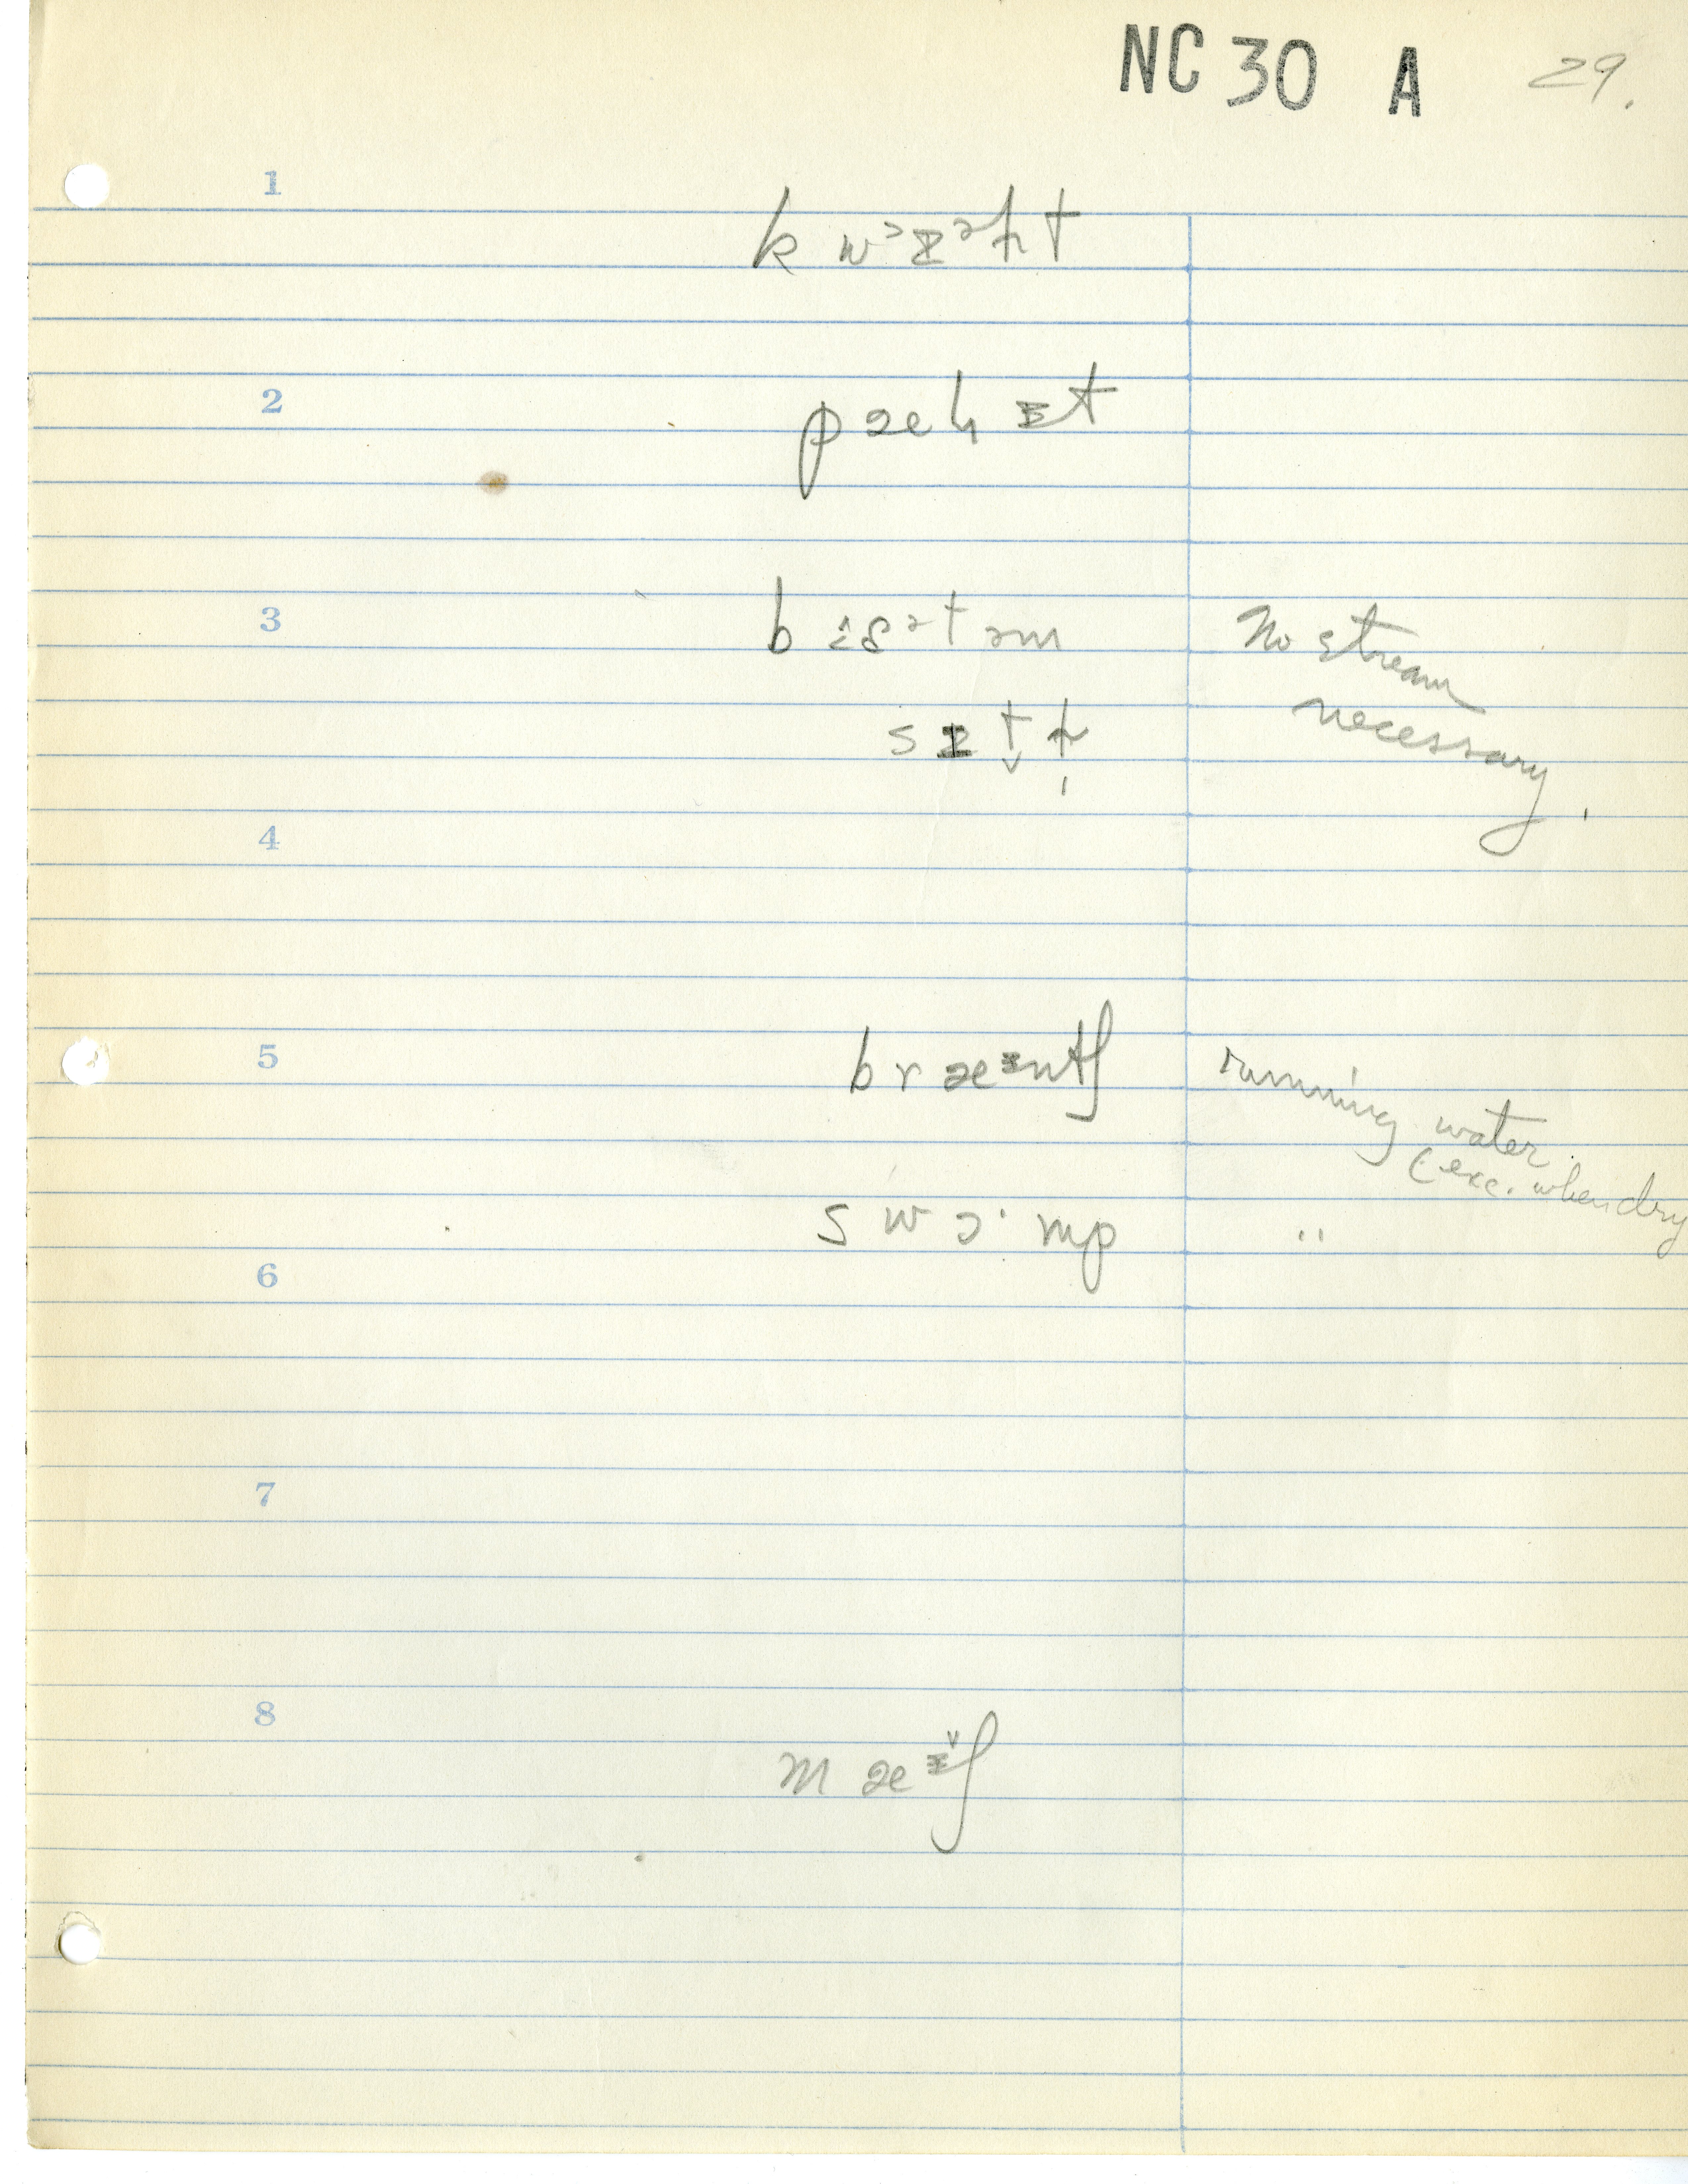 NC 30 A 29.
1
k w ɔ ɪ ə ɻ t
2
p æ h ɪ t
3
No stream
necessary.
4
5
b r æ ɪ n t ʃ
running water
(exc. when dry
s w ɔ · m p "
6
7
8
m æ ɪ̌ ʃ